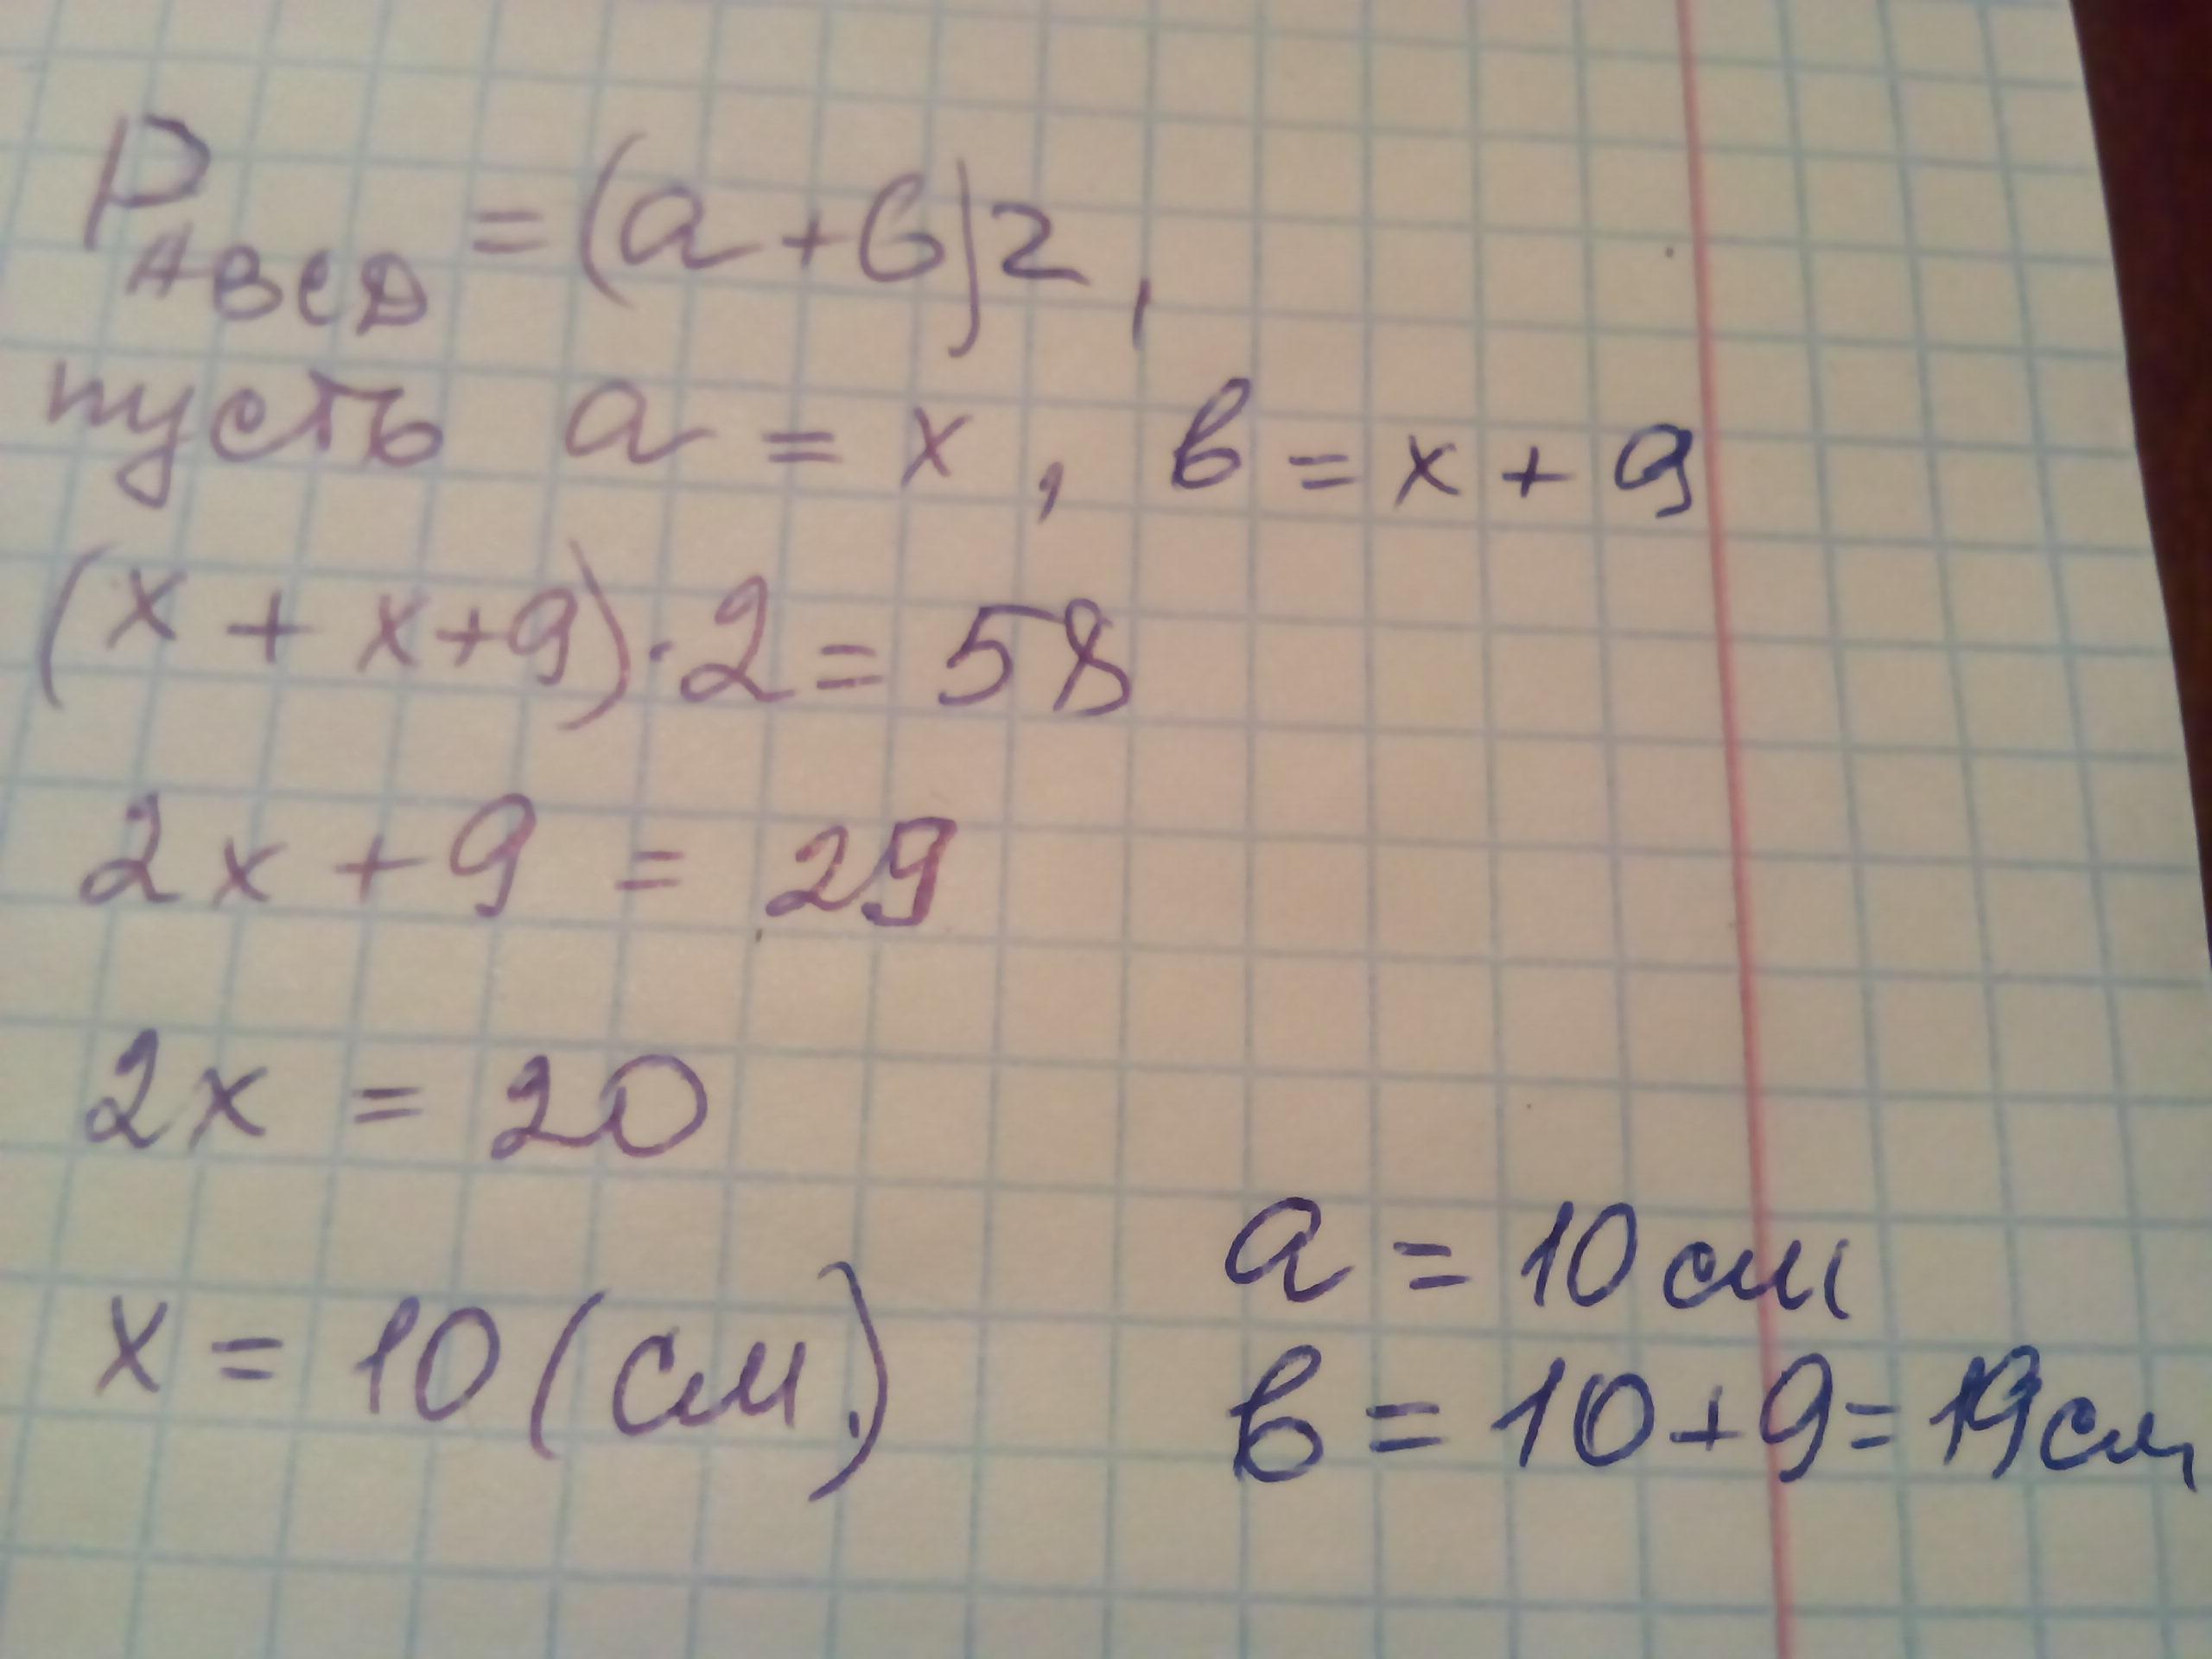 P_ABCD = (a + b)2,
пусть a = x, b = x + 9
(x + x + 9) · 2 = 58
2x + 9 = 29
2x = 20
x = 10 (см.)
a = 10 см
b = 10 + 9 = 19 см